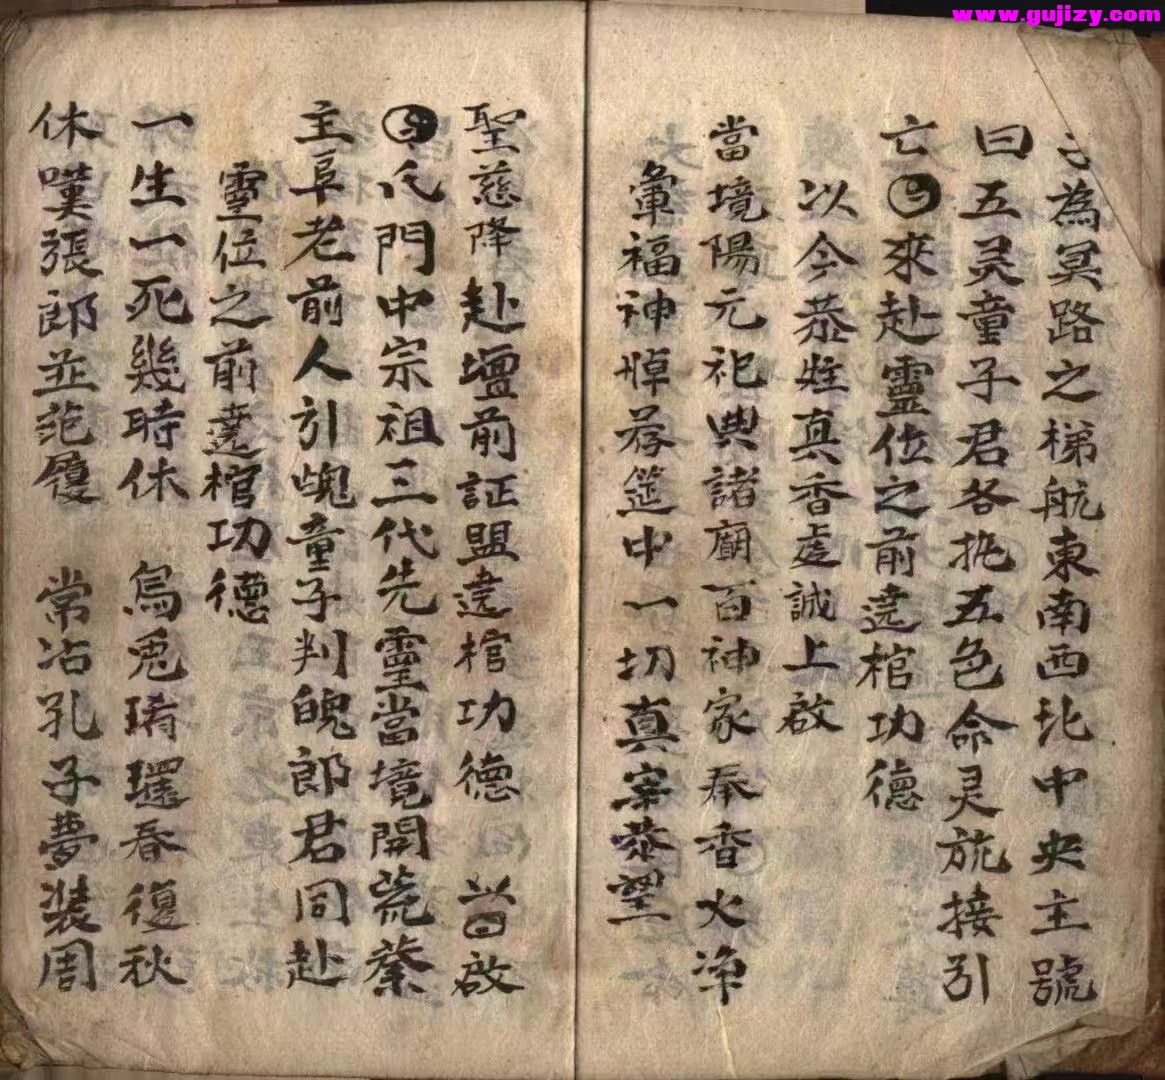 www.gujizy.com
為冥路之梯航東南西北中央主號
曰五灵童子君各执五色命灵旎接引
亡來赴靈位之前遶棺功德
以今恭炷真香虔誠上啟
當境陽元祀典諸廟百神家奉香火净
彙福神悼荐筵中一切真宰恭望
聖慈降赴壇前証盟遶棺功德 啟
氏門中宗祖三代先靈當境開荒
主阜老前人引魄童子判魄郎君同赴
靈位之前遶棺功德
一生一死幾時休 烏兎循環春復秋
休嘆張郎並范履 常沾孔子夢裝周